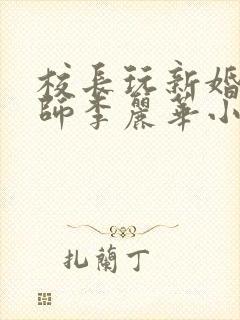 校長玩新婚
師李麗華小
扎蘭丁